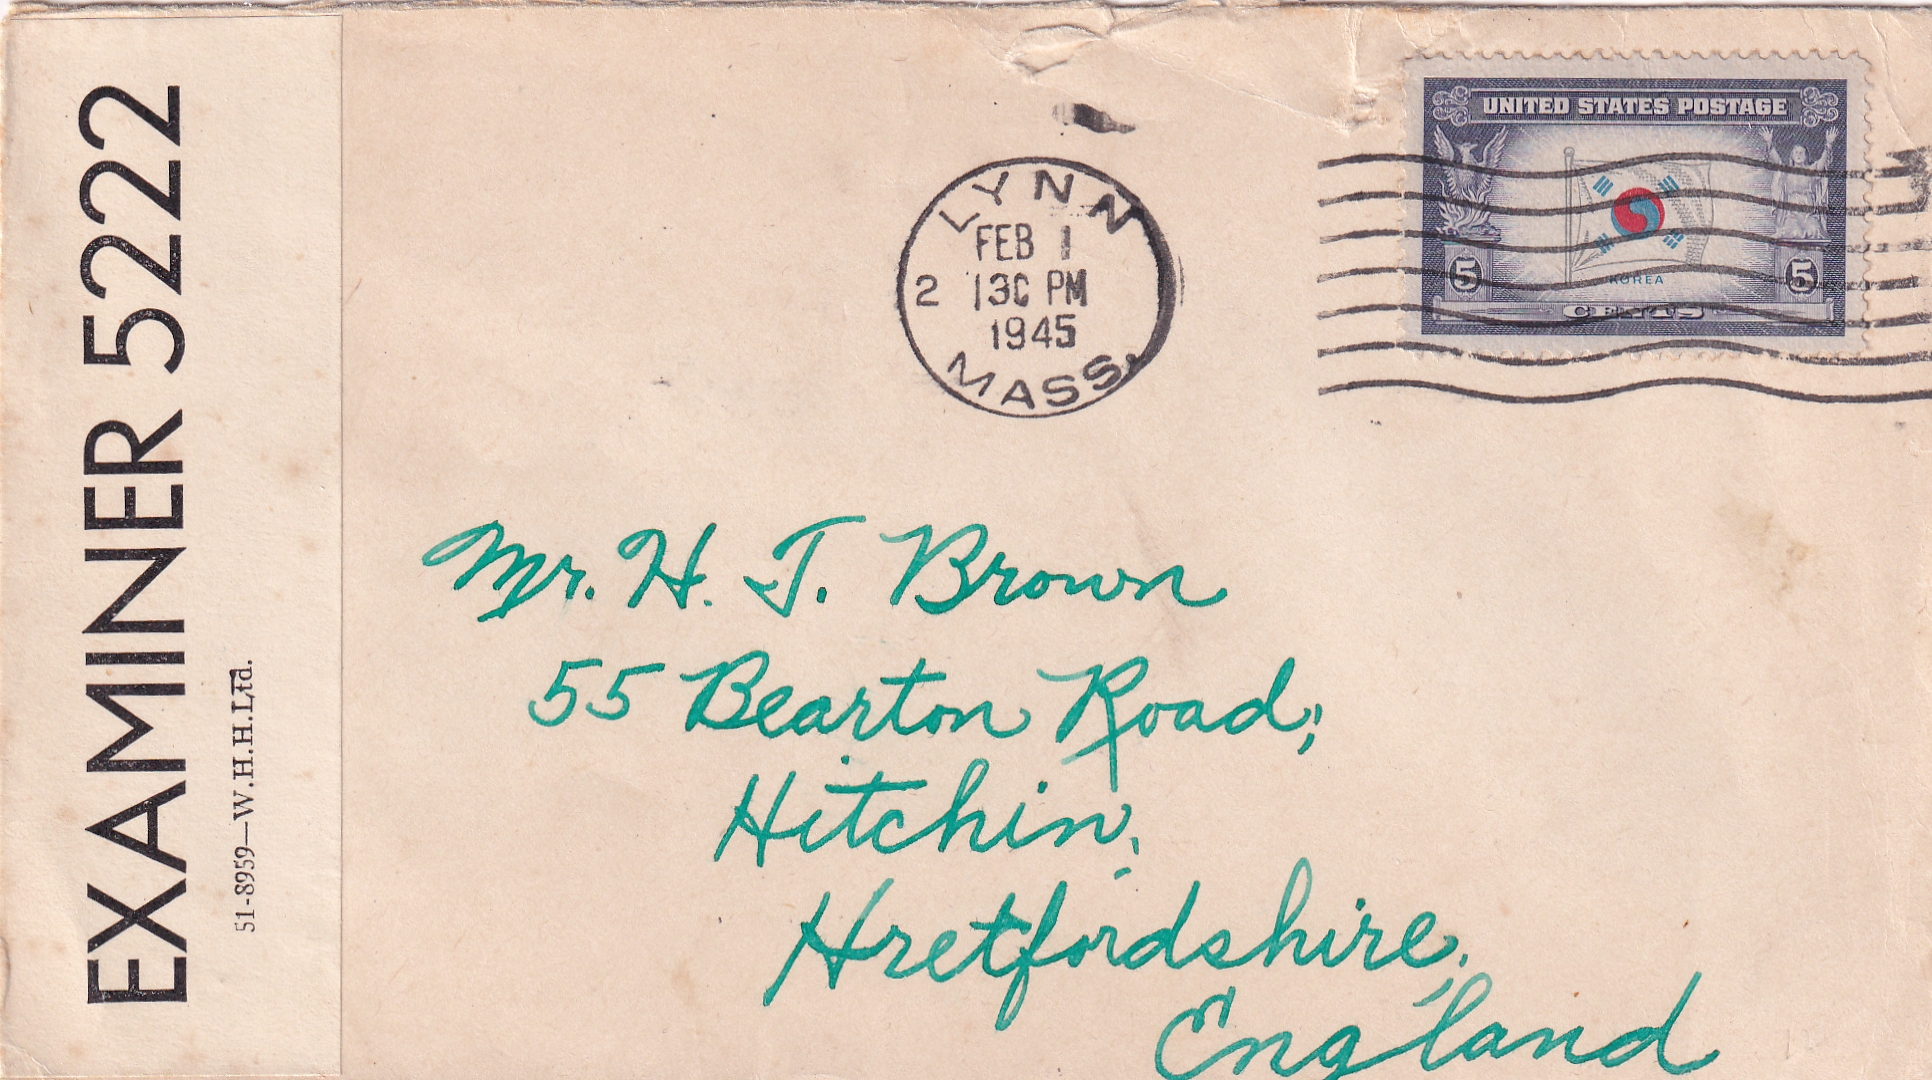 EXAMINER 5222
51-8959—W.H.H.Ltd.
LYNN
FEB 1
2 130 PM
1945
MASS.
UNITED STATES POSTAGE
KOREA
5 5
CENTS
Mr. H. J. Brown
55 Bearton Road,
Hitchin,
Hretfordshire,
England